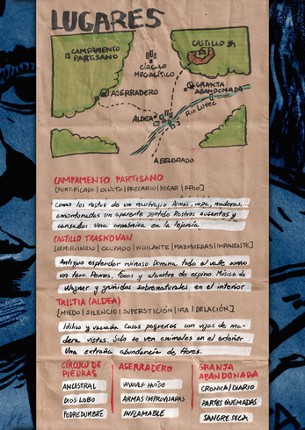 LUGARES
CAMPAMENTO
PARTISANO
CASTILLO
CÍRCULO
MEGALÍTICO
ASERRADERO
GRANJA
ABANDONADA
ALDEA
RIO
A BELGRADO
CAMPAMENTO PARTISANO
[FORTIFICADO | OCULTO | PRECARIO | HOGAR | FRIO]
Como los restos de un naufragio. Armas, ropa, maderas,
amontonadas sin aparente sentido. Rostros ausentes y
cansados. Una armónica en la lejanía
CASTILLO TRASKOVAN
[SEMIRUINOSO | OCUPADO | VIGILANTE | MAZMORRAS | IMPONENTE]
Antiguo esplendor ruinoso. Domina todo el valle como
un faro. Perros, focos y alambre de espino. Música de
Wagner y gruñidos sobrenaturales en el interior
TRISTIA (ALDEA)
[MIEDO | SILENCIO | SUPERSTICIÓN | IRA | DELACIÓN]
Idílica y vaciada. Casas pequeñas con vigas de ma-
dera vistas. Solo se ven animales en el exterior
Una extraña abundancia de flores.
CÍRCULO DE
PIEDRAS
ANCESTRAL
DIOS LOBO
PODREDUMBRE
ASERRADERO
ARMAS IMPROVISADAS
INFLAMABLE
GRANJA
ABANDONADA
CRONICA/DIARIO
PARTES QUEMADAS
SANGRE SECA